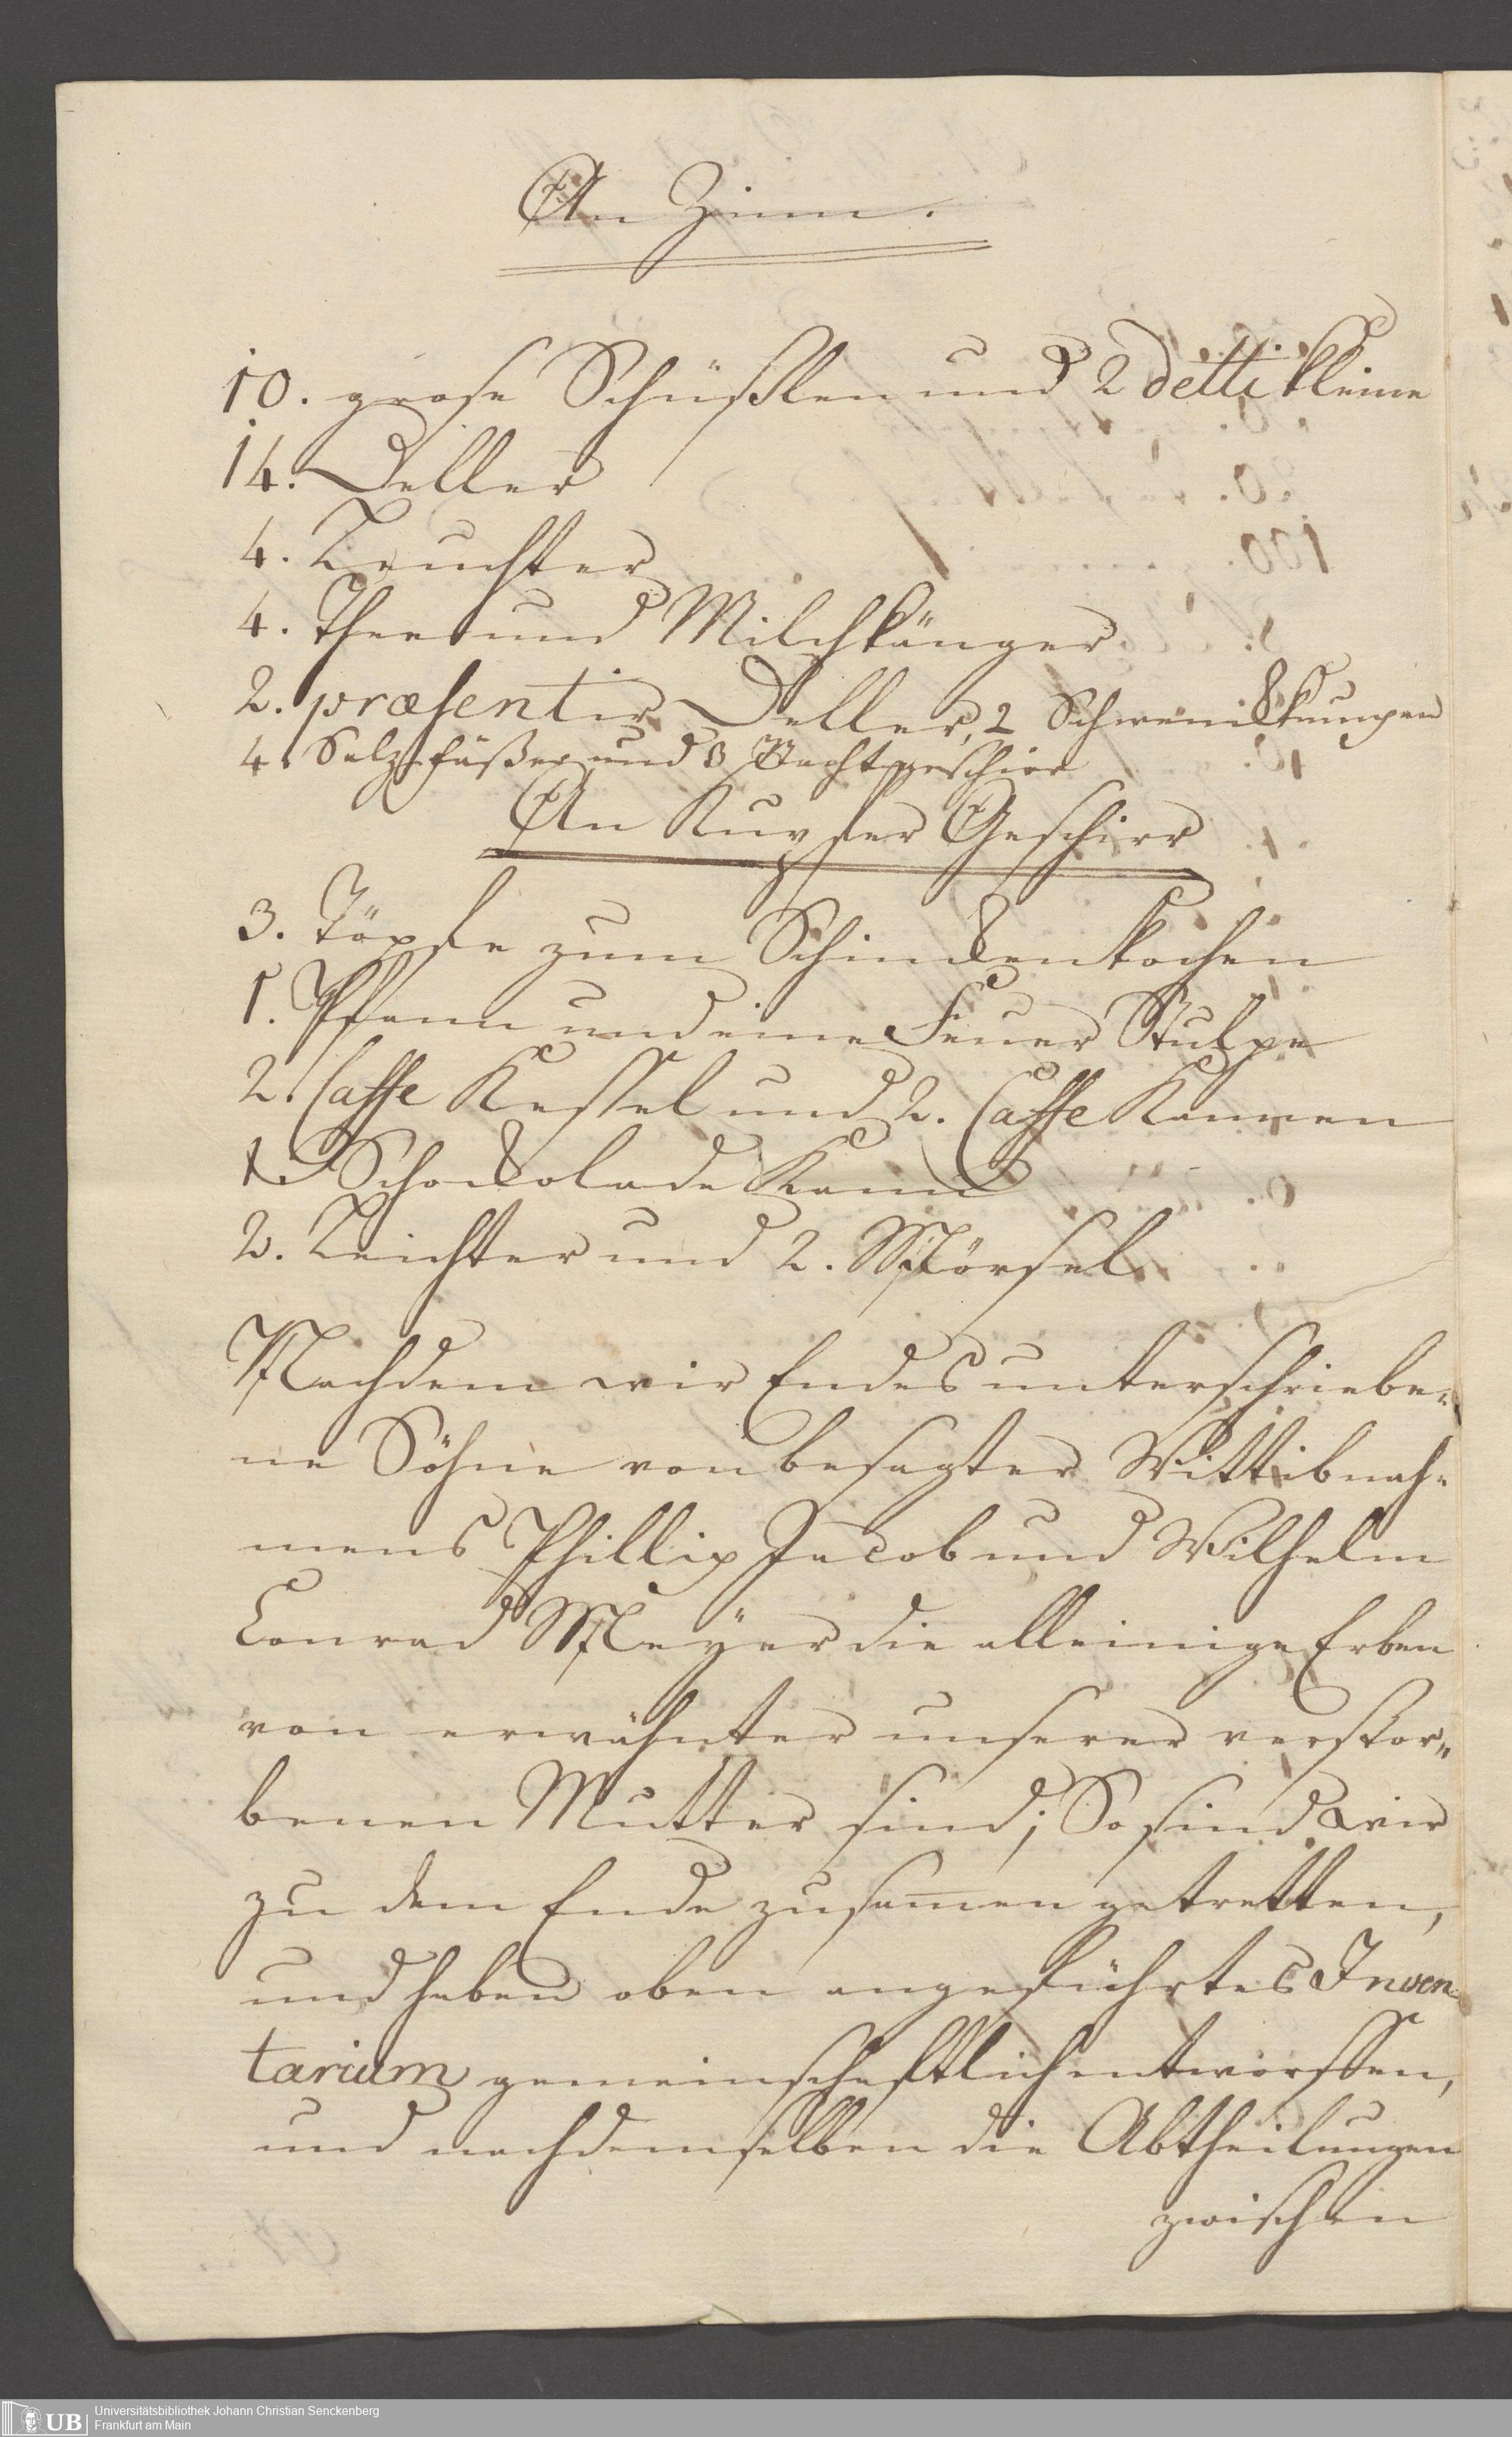 An Zinn.
10. grose Schüßlen und 2 detti kleine
14. Deller
4. Leuchter
4. Thee und Milchkänger
2. præsentir Deller, 2 Schwenckkumpen
4. Salz-fäßer und 3 Nachtgeschirr
An Kupfer Geschirr
3. Töpfe zum Schinckenkochen
1. Pfann und eine Feuer Stülpe
2. Caffe Kessel und 2. Caffe Kannen
1. Schockolade Kann
2. Leichter und 2. Mörsel
Nachdem wir Endes unterschriebe-
ne Söhne von besagter Wittib nah-
mens Phillip Jacob und Wilhelm
Conrad Meÿer die alleinige Erben
von erwähnter unserer verstor-
benen Mutter sind; So sind wir
zu dem Ende zusamen getretten,
und haben oben angeführtes Inven-
tarium gemeinschaftlich entworffen,
und nach demselben die Abtheilungen
zwischen
UB
Universitätsbibliothek Johann Christian Senckenberg
Frankfurt am Main